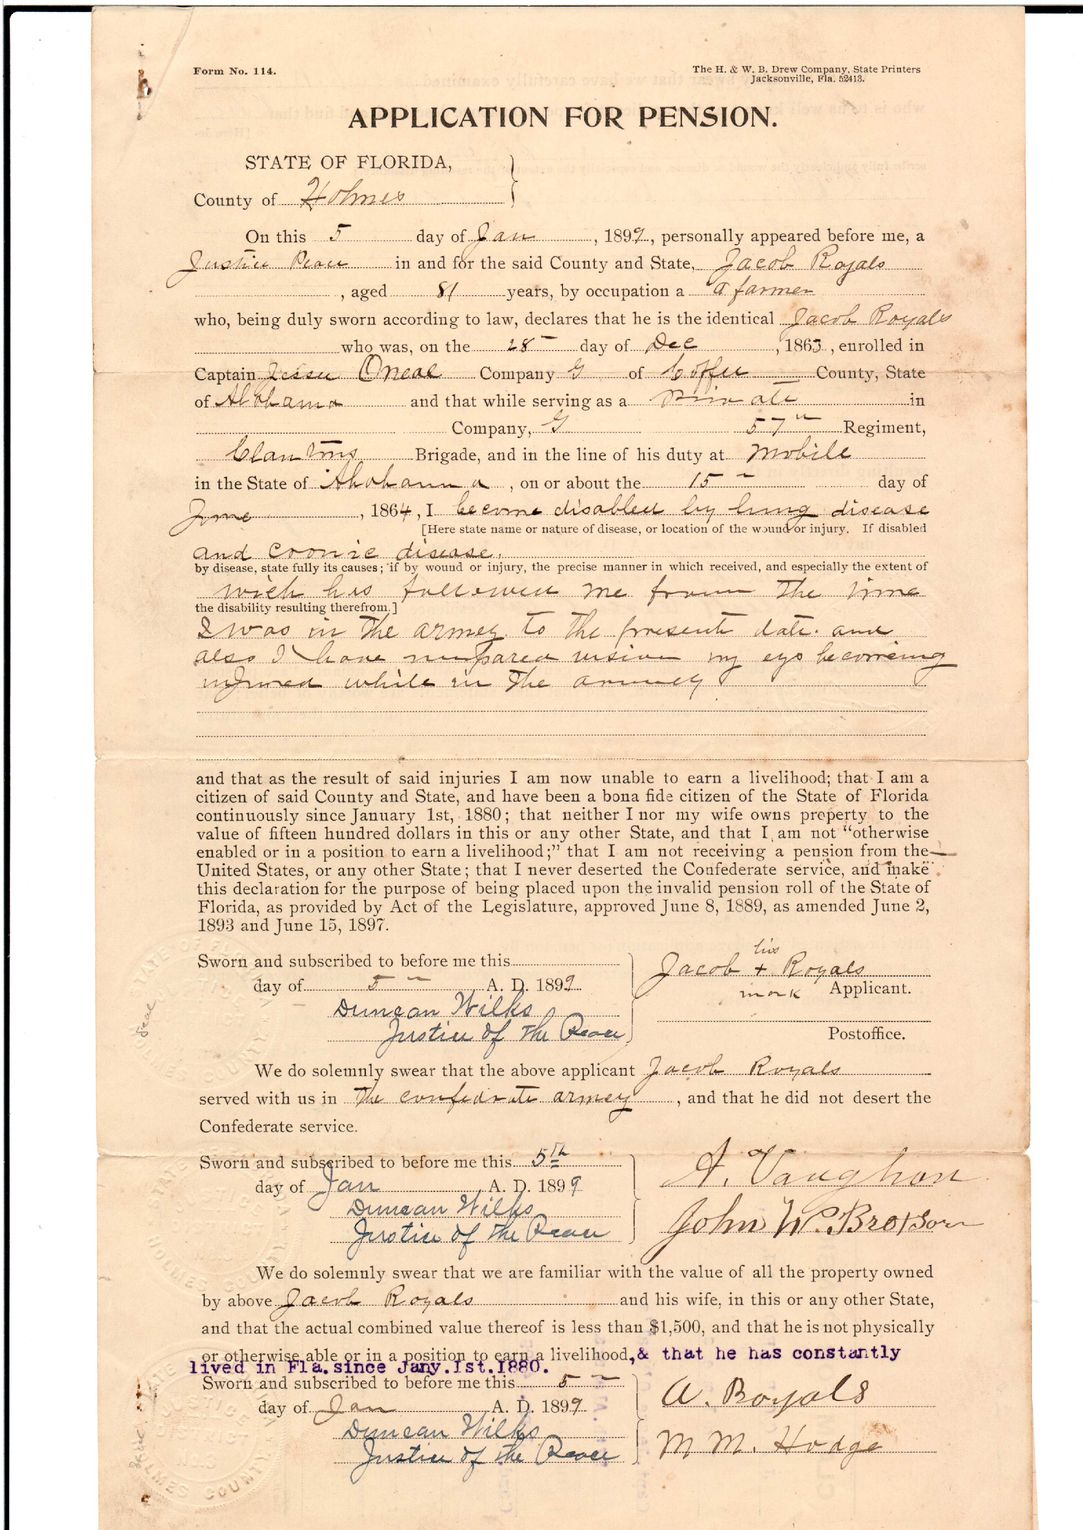 Form No. 114.
The H. & W. B. Drew Company, State Printers
Jacksonville, Fla. 52413.
APPLICATION FOR PENSION.
STATE OF FLORIDA,
County of Holmes
On this 5 day of Jan, 1899, personally appeared before me, a
Justice Peace in and for the said County and State, Jacob Royals
, aged 81 years, by occupation a a farmer
who, being duly sworn according to law, declares that he is the identical Jacob Royals
who was, on the 28 day of Dec, 1863, enrolled in
Captain Jessee Oneal Company G of Coffee County, State
of Alabama and that while serving as a Privat in
Company, G 57th Regiment,
Clantons Brigade, and in the line of his duty at Mobile
in the State of Alabama, on or about the 15 day of
June, 1864, I become disabled by lung disease
[Here state name or nature of disease, or location of the wound or injury. If disabled
and cronic disease.
by disease, state fully its causes; if by wound or injury, the precise manner in which received, and especially the extent of
wich has followed me from the time
the disability resulting therefrom.]
I was in the armey to the present date. and
also I have vision my eys becomeing
injured while in the armey
and that as the result of said injuries I am now unable to earn a livelihood; that I am a
citizen of said County and State, and have been a bona fide citizen of the State of Florida
continuously since January 1st, 1880; that neither I nor my wife owns property to the
value of fifteen hundred dollars in this or any other State, and that I am not "otherwise
enabled or in a position to earn a livelihood;" that I am not receiving a pension from the
United States, or any other State; that I never deserted the Confederate service, and make
this declaration for the purpose of being placed upon the invalid pension roll of the State of
Florida, as provided by Act of the Legislature, approved June 8, 1889, as amended June 2,
1893 and June 15, 1897.
Sworn and subscribed to before me this
day of 5 A. D. 1899
Duncan Wilks
Justice of the Peace
his
Jacob + Royals
mark Applicant.
Postoffice.
seal
We do solemnly swear that the above applicant Jacob Royals
served with us in the confedrate armey, and that he did not desert the
Confederate service.
Sworn and subscribed to before me this 5th
day of Jan A. D. 1899
Duncan Wilks
Justice of the Peace
A. Vaughan
John W.
We do solemnly swear that we are familiar with the value of all the property owned
by above Jacob Royals and his wife, in this or any other State,
and that the actual combined value thereof is less than $1,500, and that he is not physically
or otherwise able or in a position to earn a livelihood,& that he has constantly
lived in Fla.since Jany.Ist.I880.
Sworn and subscribed to before me this 5
day of Jan A. D. 1899
Duncan Wilks
Justice of the Peace
A. Royals
M M. Hodge
seal